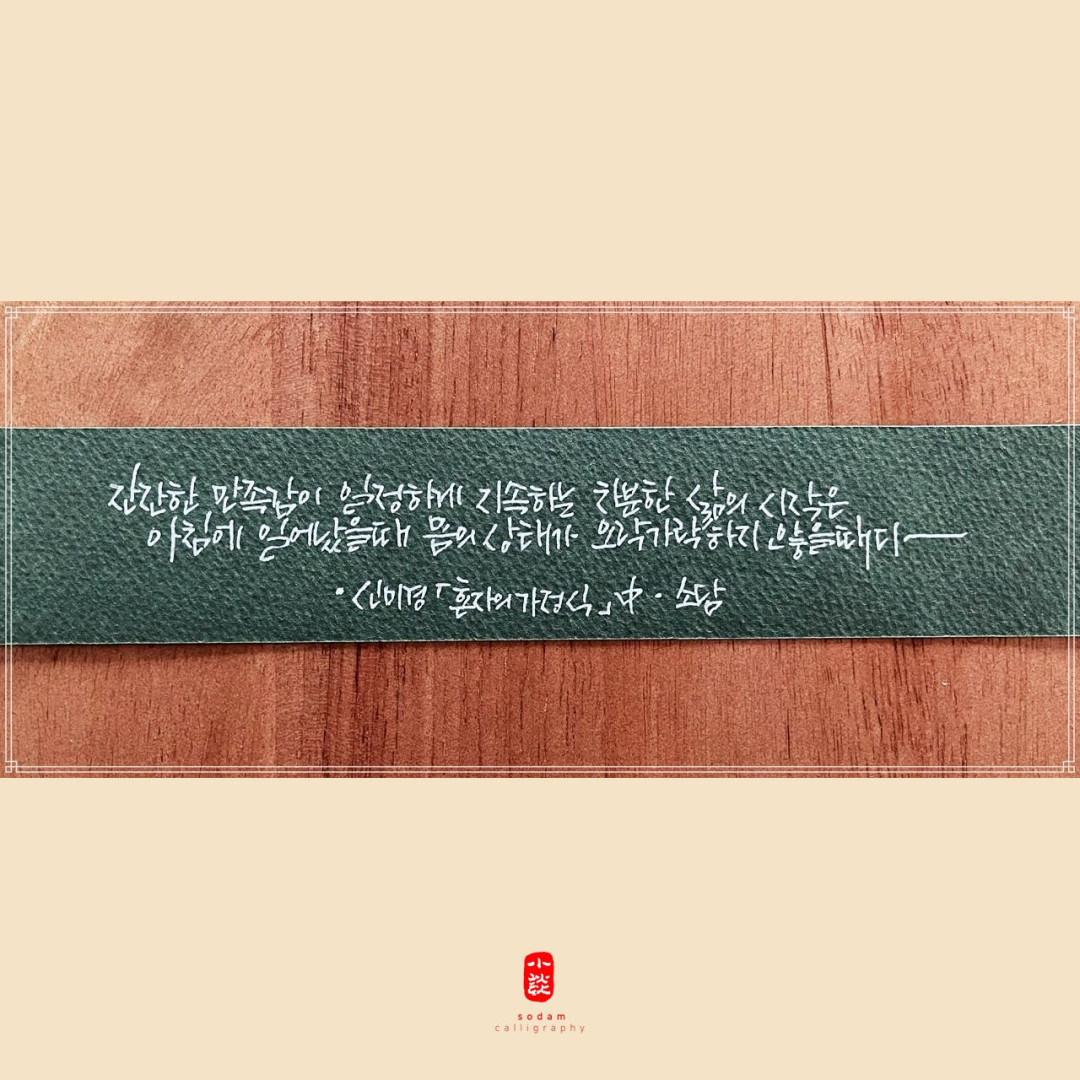 잔잔한 만족감이 일정하게 지속하는 차분한 삶의 시작은
아침에 일어났을때 몸의 상태가 오락가락하지 않을때다
· 신미경 「혼자의 가정식」 中 · 소담
小談
sodam
calligraphy